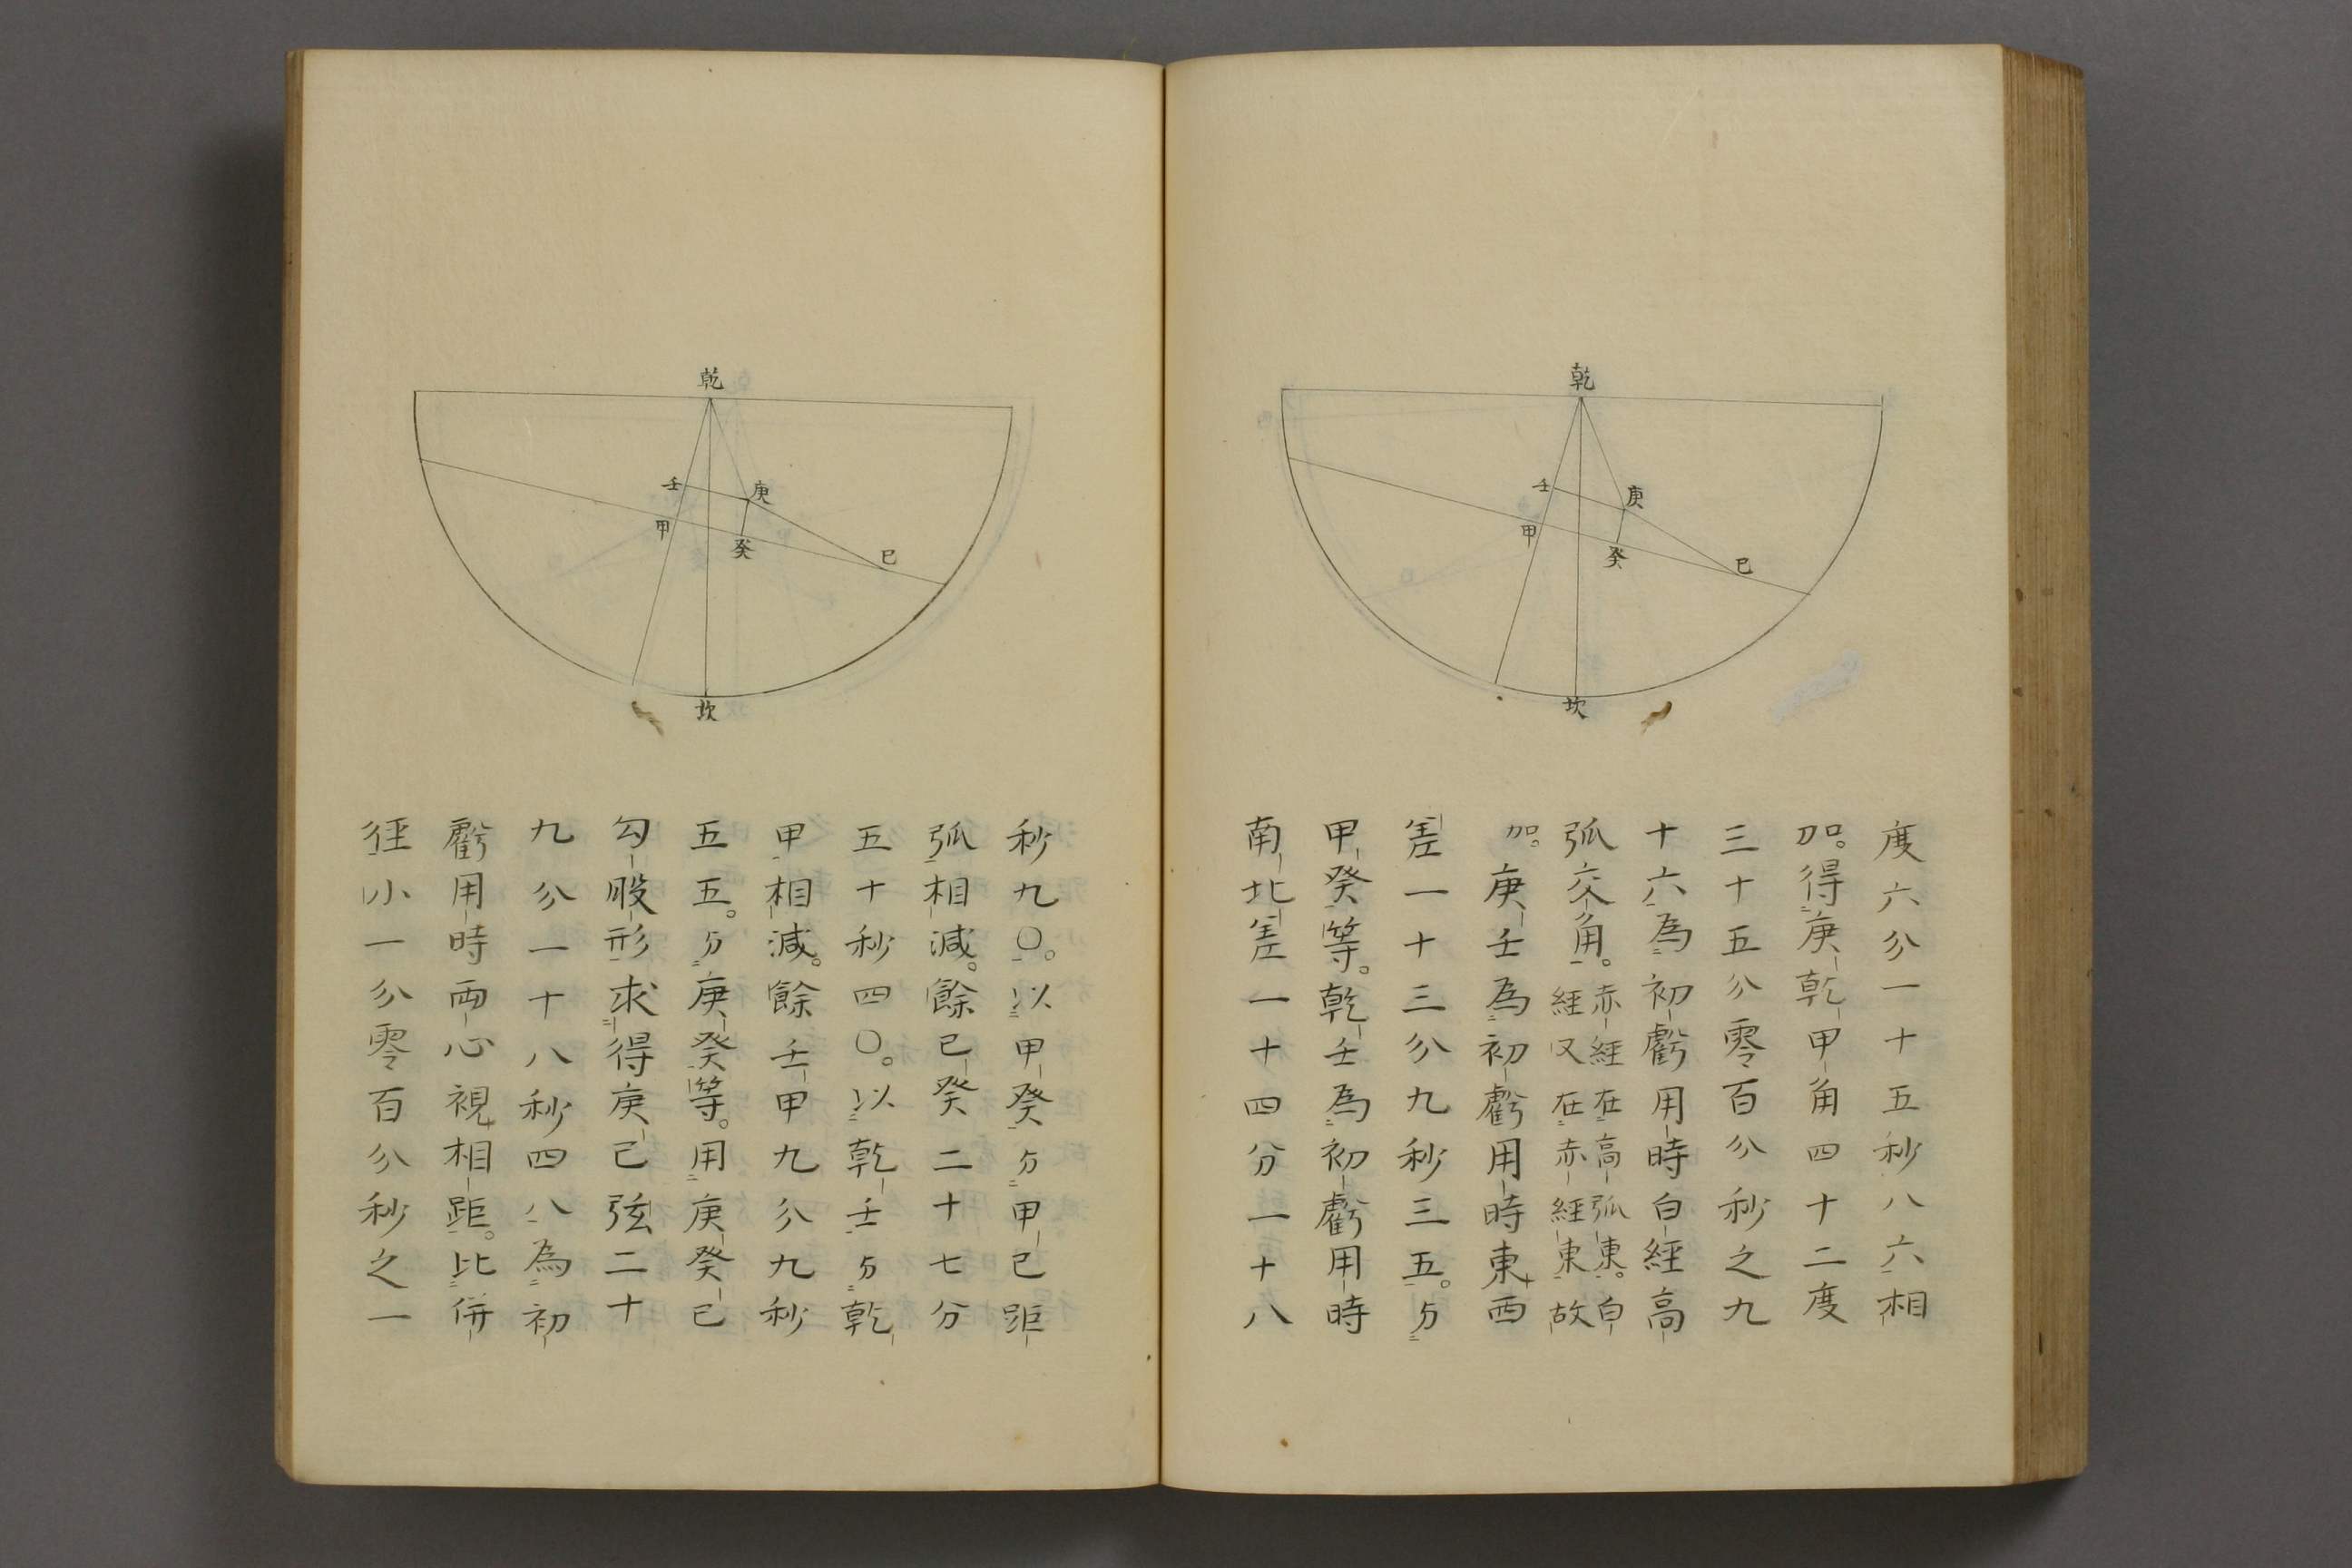 乾
壬
庚
甲
癸
巳
坎
度六分一十五秒八六相
加。得庚乾甲角四十二度
三十五分零百分秒之九
十六為初虧用時白經高
弧交角。赤經在高弧東。白
經又在赤經東故
加。庚壬為初虧用時東西
差一十三分九秒三五。与
甲癸等。乾壬為初虧用時
南北差一十四分一十八
乾
壬
庚
甲
癸
巳
坎
秒九〇。以甲癸与甲己距
弧相減。餘己癸二十七分
五十秒四〇。以乾壬与乾
甲相減。餘壬甲九分九秒
五五。与庚癸等。用庚癸己
勾股形求得庚己弦二十
九分一十八秒四八為初
虧用時両心視相距。比併
徑小一分零百分秒之一